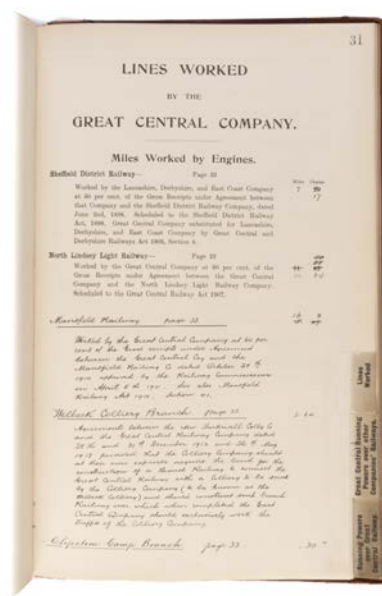 31
LINES WORKED
BY THE
GREAT CENTRAL COMPANY.
Miles Worked by Engines.
Sheffield District Railway— Page 32
Miles Chains
Worked by the Lancashire, Derbyshire, and East Coast Company 7
at 50 per cent. of the Gross Receipts under Agreement between 17
that Company and the Sheffield District Railway Company, dated
June 2nd, 1898. Scheduled to the Sheffield District Railway
Act, 1898. Great Central Company substituted for Lancashire,
Derbyshire, and East Coast Company by Great Central and
Derbyshire Railways Act 1906, Section 4.
North Lindsey Light Railway— Page 32
Worked by the Great Central Company at 60 per cent. of the
Gross Receipts under Agreement between the Great Central
Company and the North Lindsey Light Railway Company.
Scheduled to the Great Central Railway Act 1907.
Mansfield Railway page 33
Worked by the Great Central Company at 60 per
cent of the Gross receipts under Agreement
between the Great Central Coy and the
Mansfield Railway Co dated October
1910 approved by the Railway Commissioners
on April 6th 191 See also Mansfield
Railway Act 1910. Section
Welbeck Colliery Branch page 33
Agreement between the New Hucknall Colly Co
and the Great Central Railway Company dated
28th and 31st December 1912 and 7th May
1913 provided that the Colliery Company should
at their own expense acquire the land for the
construction of a Branch Railway to connect the
Great Central Railway with a Colliery to be sunk
by the Colliery Company (to be known as the
Welbeck Colliery) and should construct such branch
Railway over which when completed the Great
Central Company should exclusively work the
traffic of the Colliery Company
Clipstone Camp Branch page 33
Lines
Worked
Great Central Running
Powers over other
Companies' Railways.
Running Powers
over Great
Central Railway